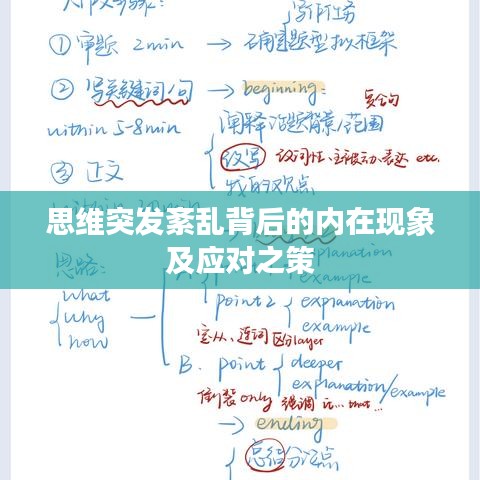 写作任务
① 审题 2min → 确定题型拟框架
② 写关键词/句 → beginning:
复合句
within 5-8min
阐释话题背景/范围
改写 改词性、主被动表达 etc.
③ 正文
我的观点
思维突发紊乱背后的内在现象
及应对之策
思路:
explanation
what
why
how
point 2 explanation
example
定从、连词区分layer
B. point deeper
explanation/example
倒装only 强调 it...that...
→ ending
总结分论点